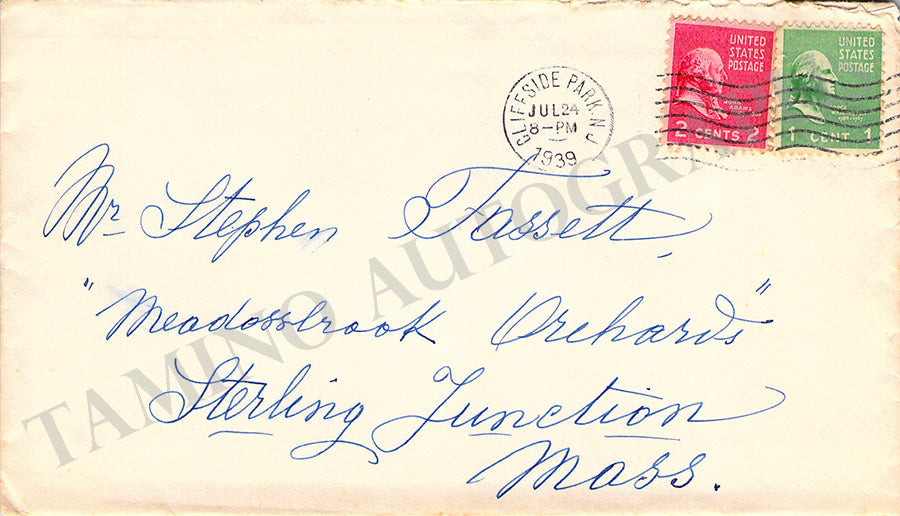 CLIFFSIDE PARK. N J
JUL 24
8-PM
1939
UNITED
STATES
POSTAGE
JOHN
ADAMS
2 CENTS 2
UNITED
STATES
POSTAGE
WASHINGTON
1 CENT 1
Mr Stephen Fassett,
"Meadossbrook Orchards"
Sterling Junction
Mass.
TAMINO AUTOGRA